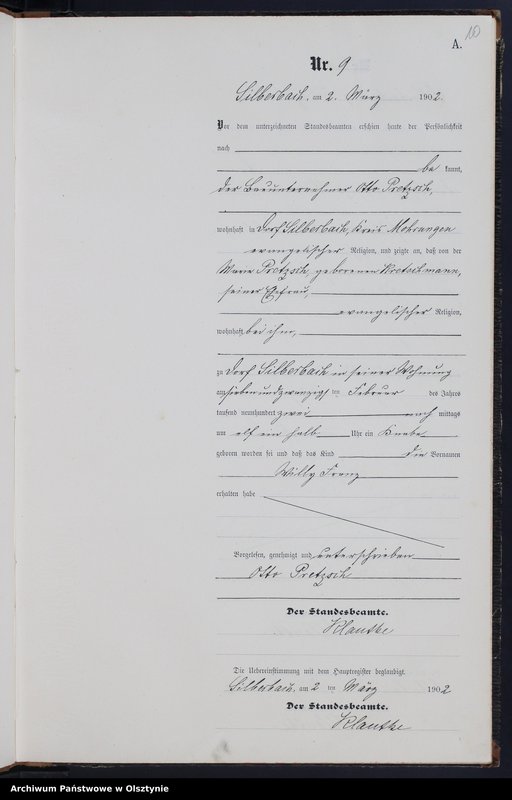 10
A.
Nr. 9
Silberbach, am 2. März 1902.
Vor dem unterzeichneten Standesbeamten erschien heute der Persönlichkeit
nach
be kannt,
der Bauunternehmer Otto Pretzsch,
wohnhaft in Dorf Silberbach, Kreis Mohrungen
evangelischer Religion, und zeigte an, daß von der
Marie Pretzsch, geborenen Kretschmann,
seiner Ehefrau,
evangelischer Religion,
wohnhaft bei ihm,
zu Dorf Silberbach in seiner Wohnung
am siebenundzwanzigs ten Februar des Jahres
tausend neunhundert zwei nach mittags
um elf ein halb Uhr ein Knabe
geboren worden sei und daß das Kind die Vornamen
Willy Franz
erhalten habe
Vorgelesen, genehmigt und unterschrieben
Otto Pretzsch
Der Standesbeamte.
Klautke
Die Uebereinstimmung mit dem Hauptregister beglaubigt.
Silberbach, am 2 ten März 1902
Der Standesbeamte.
Klautke
Archiwum Państwowe w Olsztynie